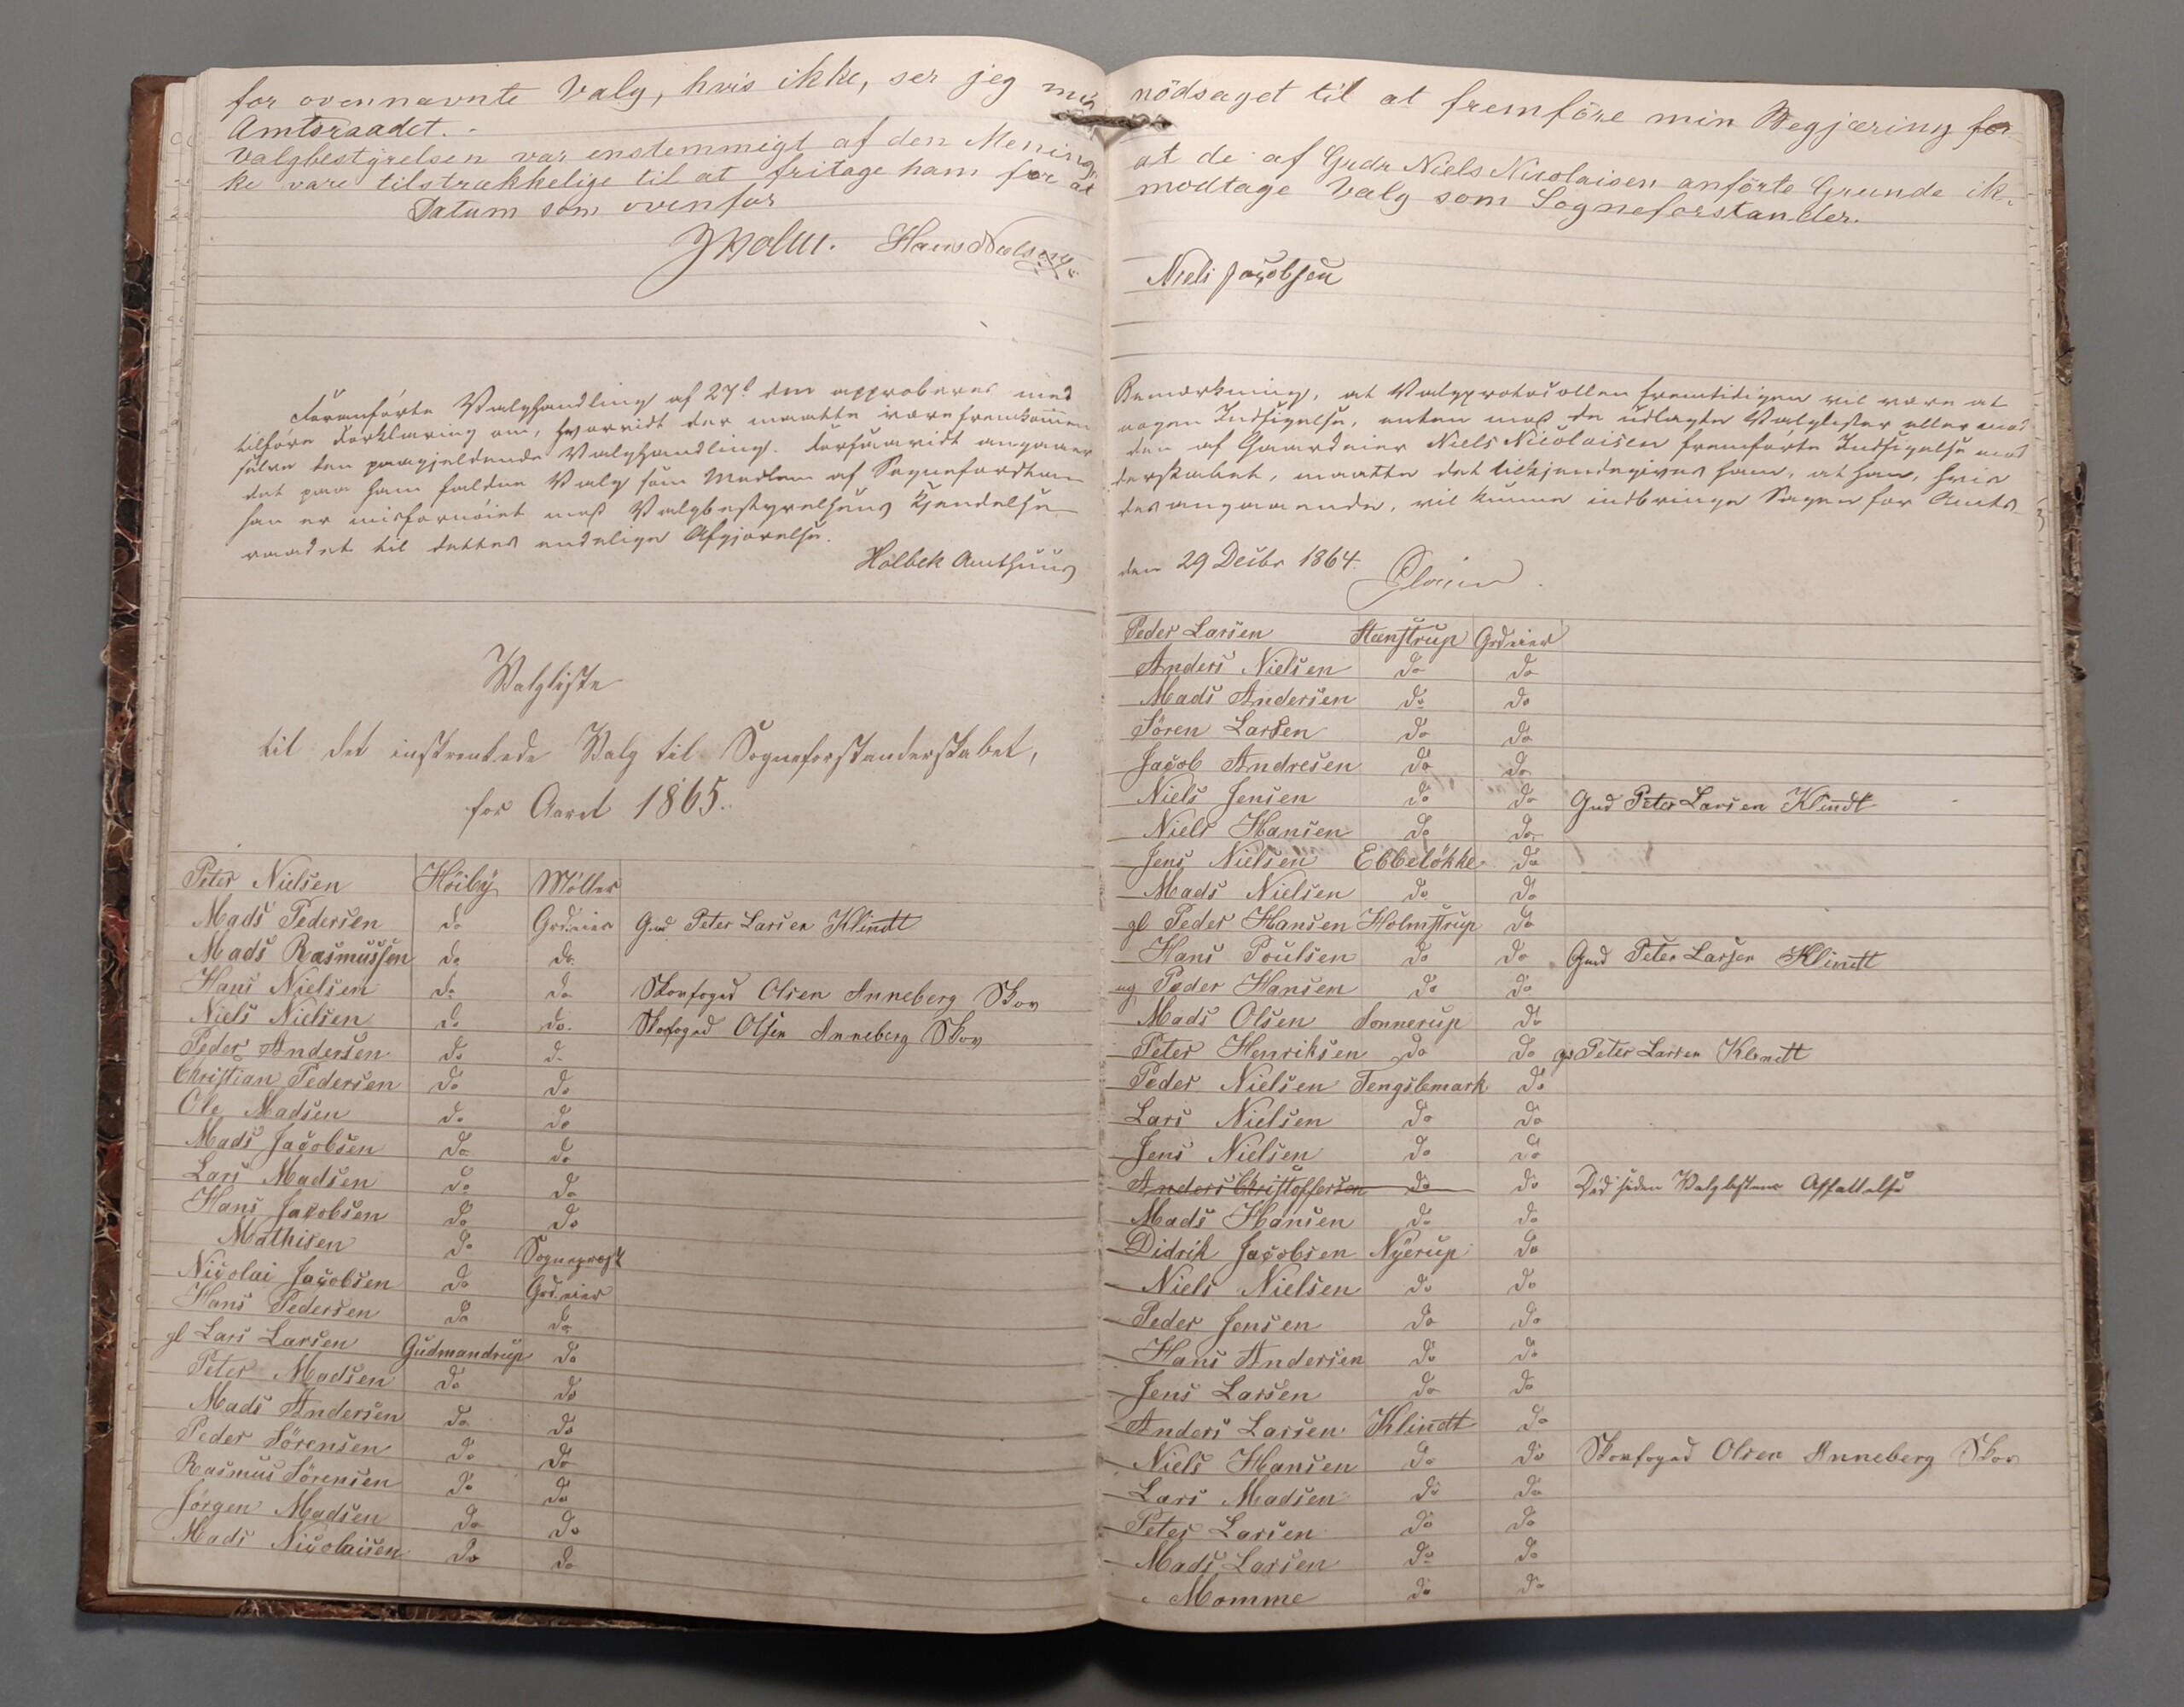 for ovennævnte Valg, hvis ikke, ser jeg mig nödsaget til at fremföre min Begjæring for
Amtsraadet.
Valgbestÿrelsen var enstemmigt af den Mening, at de af Grdr Niels Nicolaisen anförte Grunde ik-
ke vare tilstrækkelige til at fritage ham for at modtage Valg som Sogneforstander.
Datum som ovenfor
Hans Nielsen Niels Jacobsen
Foranførte Valghandling af 27. dm approberes med Bemærkning, at Valgprotocollen fremtidigen vil være at
tilføre Forklaring om, hvorvidt der maatte være fremkommen nogen Indsigelse, enten mod de udlagte Valglister eller mod
selve den paagjeldende Valghandling. Forsaavidt angaaer den af Gaardeier Niels Nicolaisen fremførte Indsigelse mod
det paa ham faldne Valg som Medlem af Sogneforstan- derskabet, maatte det tilkjendegives ham, at han, hvis
han er misfornøiet med Valgbestyrelsens Kjendelse desangaaende, vil kunne indbringe Sagen for Amts-
raadet til dettes endelige Afgjørelse.
Holbek Amthuus den 29 Decbr 1864.
Valgliste
til det indskrænkede Valg til Sogneforstanderskabet,
for Aaret 1865.
Peter Nielsen Höiby Møller
Mads Pedersen do Grdeier Grd Peter Larsen Klindt
Mads Rasmussen do do
Hans Nielsen do do Skovfoged Olsen Anneberg Skov
Niels Nielsen do do Skovfoged Olsen Anneberg Skov
Peder Andersen do do
Christian Pedersen do do
Ole Madsen do do
Mads Jacobsen do do
Lars Madsen do do
Hans Jacobsen do do
Mathisen do Sognepræst
Nicolai Jacobsen do Grdeier
Hans Pedersen do do
gl Lars Larsen Gudmandrup do
Peter Madsen do do
Mads Andersen do do
Peder Sörensen do do
Rasmus Sörensen do do
Jörgen Madsen do do
Mads Nicolaisen do do
Peder Larsen Stenstrup Grdeier
Anders Nielsen do do
Mads Andersen do do
Sören Larsen do do
Jacob Andresen do do
Niels Jensen do do Grd Peter Larsen Klindt
Niels Hansen do do
Jens Nielsen Ebbelökke do
Mads Nielsen do do
gl Peder Hansen Holmstrup do
Hans Poulsen do do Grd Peter Larsen Klindt
ug Peder Hansen do do
Mads Olsen Sonnerup do
Peter Henriksen do do Peter Larsen Klindt
Peder Nielsen Tengslemark do
Lars Nielsen do do
Jens Nielsen do do
Anders Christoffersen do do Död siden Valglistens Affattelse
Mads Hansen do do
Didrik Jacobsen Nÿerup do
Niels Nielsen do do
Peder Jensen do do
Hans Andersen do do
Jens Larsen do do
Anders Larsen Klindt do
Niels Hansen do do Skovfoged Olsen Anneberg Skov
Lars Madsen do do
Peter Larsen do do
Mads Larsen do do
Momme do do